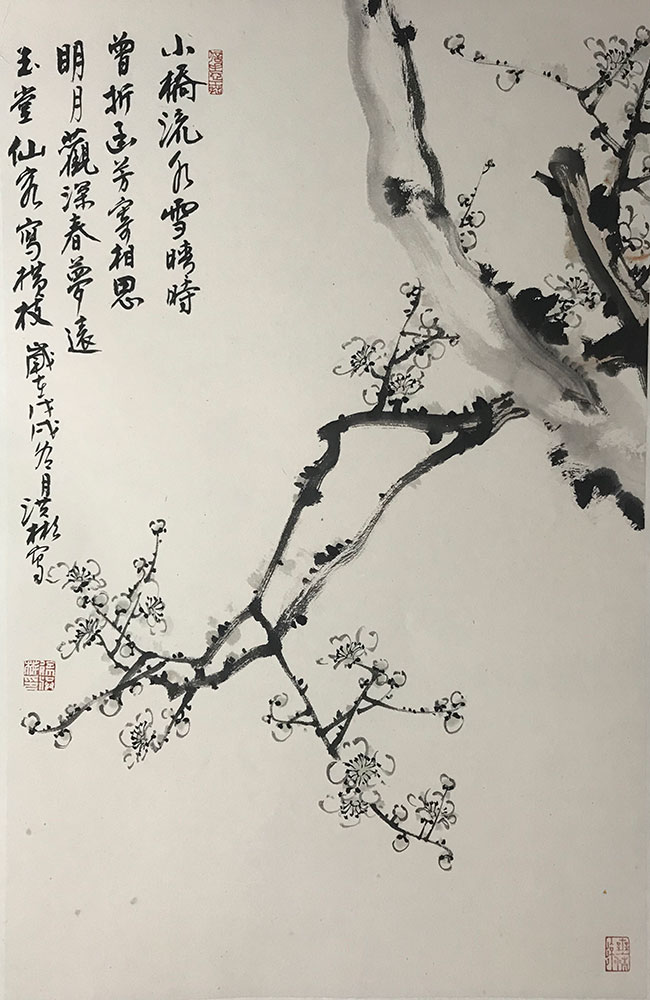 小橋流水雪晴時
曾折幽芳寄相思
明月觀深春夢遠
玉堂仙客寫橫枝 歲在戊戌冬月洪彬寫